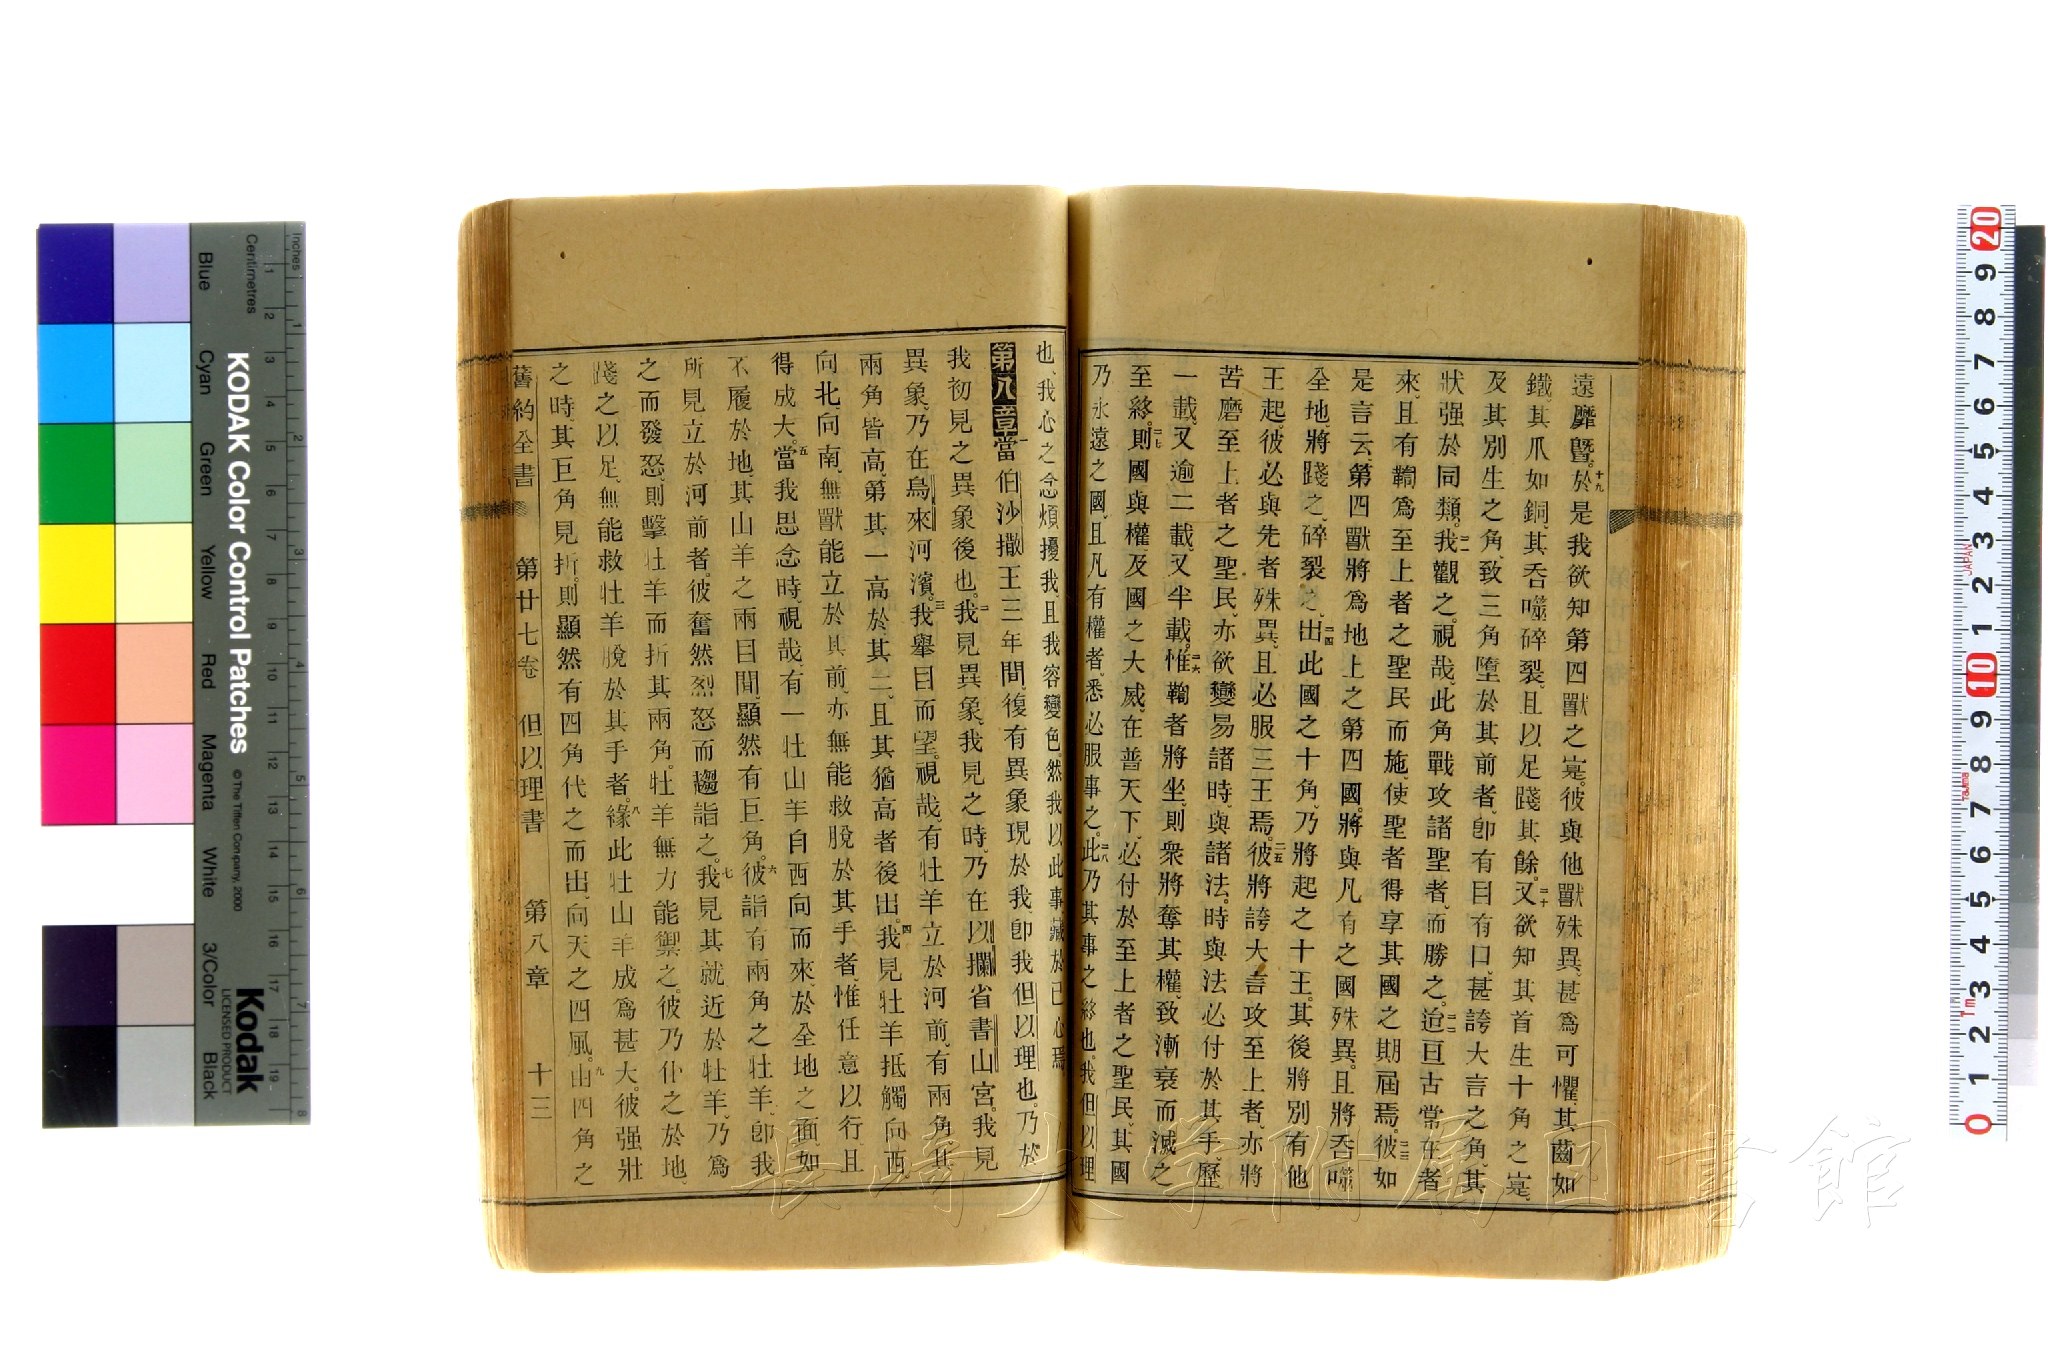 遠靡曁。十九於是我欲知第四獸之寔。彼與他獸殊異、甚爲可懼、其齒如
鐵、其爪如銅、其吞噬碎裂、且以足踐其餘。二十又欲知其首生十角之寔、
及其別生之角、致三角墮於其前者、卽有目有口、甚誇大言之角、其
狀强於同類。二一我觀之。視哉、此角戰攻諸聖者、而勝之。二二迨亘古常在者
來、且有鞫爲至上者之聖民而施、使聖者得享其國之期屆焉。二三彼如
是言云、第四獸將爲地上之第四國。將與凡有之國殊異。且將吞噬
全地、將踐之、碎裂之、二四出此國之十角、乃將起之十王。其後將別有他
王起、彼必與先者殊異、且必服三王焉。二五彼將誇大言攻至上者、亦將
苦磨至上者之聖民、亦欲變易諸時、與諸法。時與法必付於其手、歷
一載、又逾二載、又半載。二六惟鞫者將坐、則衆將奪其權、致漸衰而滅之
至終。二七則國與權、及國之大威、在普天下、必付於至上者之聖民、其國
乃永遠之國、且凡有權者、悉必服事之。二八此乃其事之終也。我但以理
也、我心之念煩擾我、且我容變色。然我以此事藏於已心焉
第八章 一當伯沙撒王三年間、復有異象現於我、卽我但以理也。乃於
我初見之異象後也。二我見異象、我見之時、乃在以攔省書山宮。我見
異象、乃在烏來河濱。三我舉目而望。視哉、有牡羊立於河前、有兩角、其
兩角皆高、第其一高於其二、且其猶高者後出。四我見牡羊抵觸向西、
向北、向南、無獸能立於其前、亦無能救脫於其手者、惟任意以行、且
得成大。五當我思念時、視哉、有一牡山羊自西向而來、於全地之面、如
不履於地、其山羊之兩目間、顯然有巨角。六彼詣有兩角之牡羊、卽我
所見立於河前者。彼奮然烈怒而趨詣之。七我見其就近於牡羊、乃爲
之而發怒、則擊牡羊而折其兩角。牡羊無力能禦之。彼乃仆之於地、
踐之以足、無能救牡羊脫於其手者。八緣此牡山羊成爲甚大。彼强壯
之時、其巨角見折。則顯然有四角代之而出、向天之四風。九由四角之
舊約全書 第廿七卷 但以理書 第八章 十三
長崎大学附属図書館
KODAK Color Control Patches
© The Tiffen Company, 2000
Kodak
LICENSED PRODUCT
Inches
Centimetres
Blue
Cyan
Green
Yellow
Red
Magenta
White
3/Color
Black
JAPAN